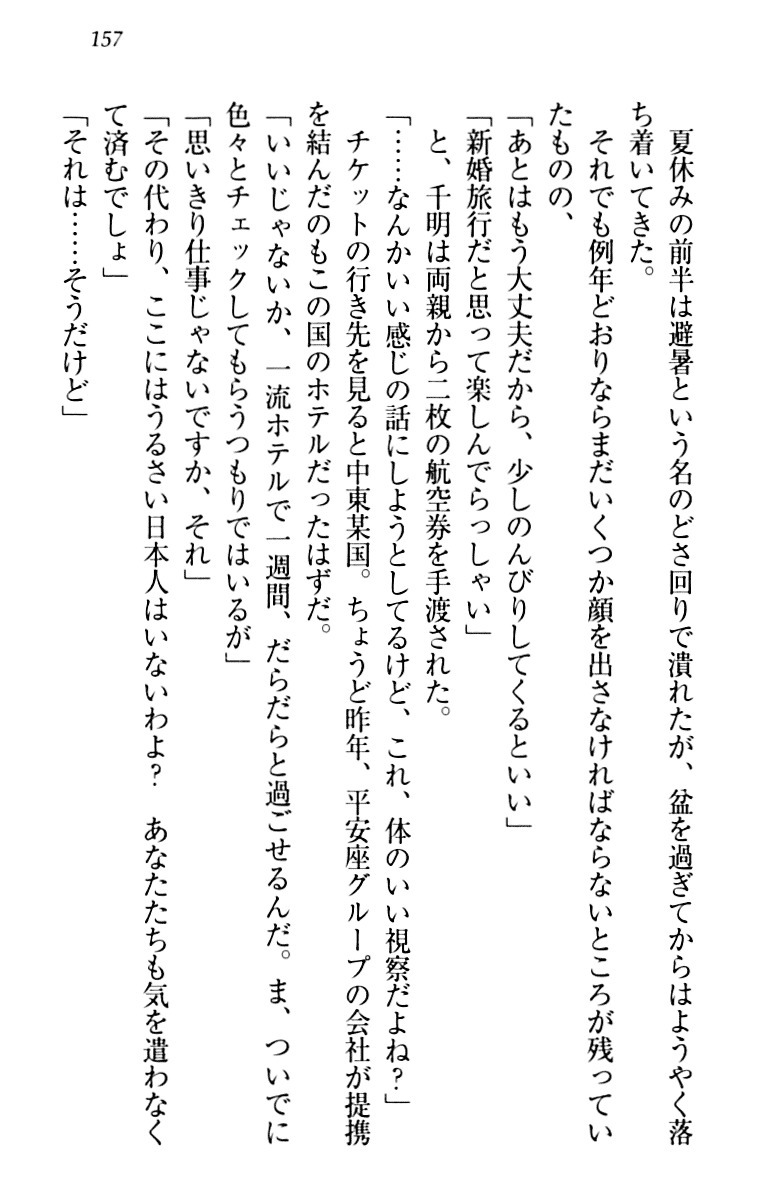 157
夏休みの前半は避暑という名のどさ回りで潰れたが、盆を過ぎてからはようやく落
ち着いてきた。
それでも例年どおりならまだいくつか顔を出さなければならないところが残ってい
たものの、
「あとはもう大丈夫だから、少しのんびりしてくるといい」
「新婚旅行だと思って楽しんでらっしゃい」
と、千明は両親から二枚の航空券を手渡された。
「……なんかいい感じの話にしようとしてるけど、これ、体のいい視察だよね？」
チケットの行き先を見ると中東某国。ちょうど昨年、平安座グループの会社が提携
を結んだのもこの国のホテルだったはずだ。
「いいじゃないか、一流ホテルで一週間、だらだらと過ごせるんだ。ま、ついでに
色々とチェックしてもらうつもりではいるが」
「思いきり仕事じゃないですか、それ」
「その代わり、ここにはうるさい日本人はいないわよ？　あなたたちも気を遣わなく
て済むでしょ」
「それは……そうだけど」